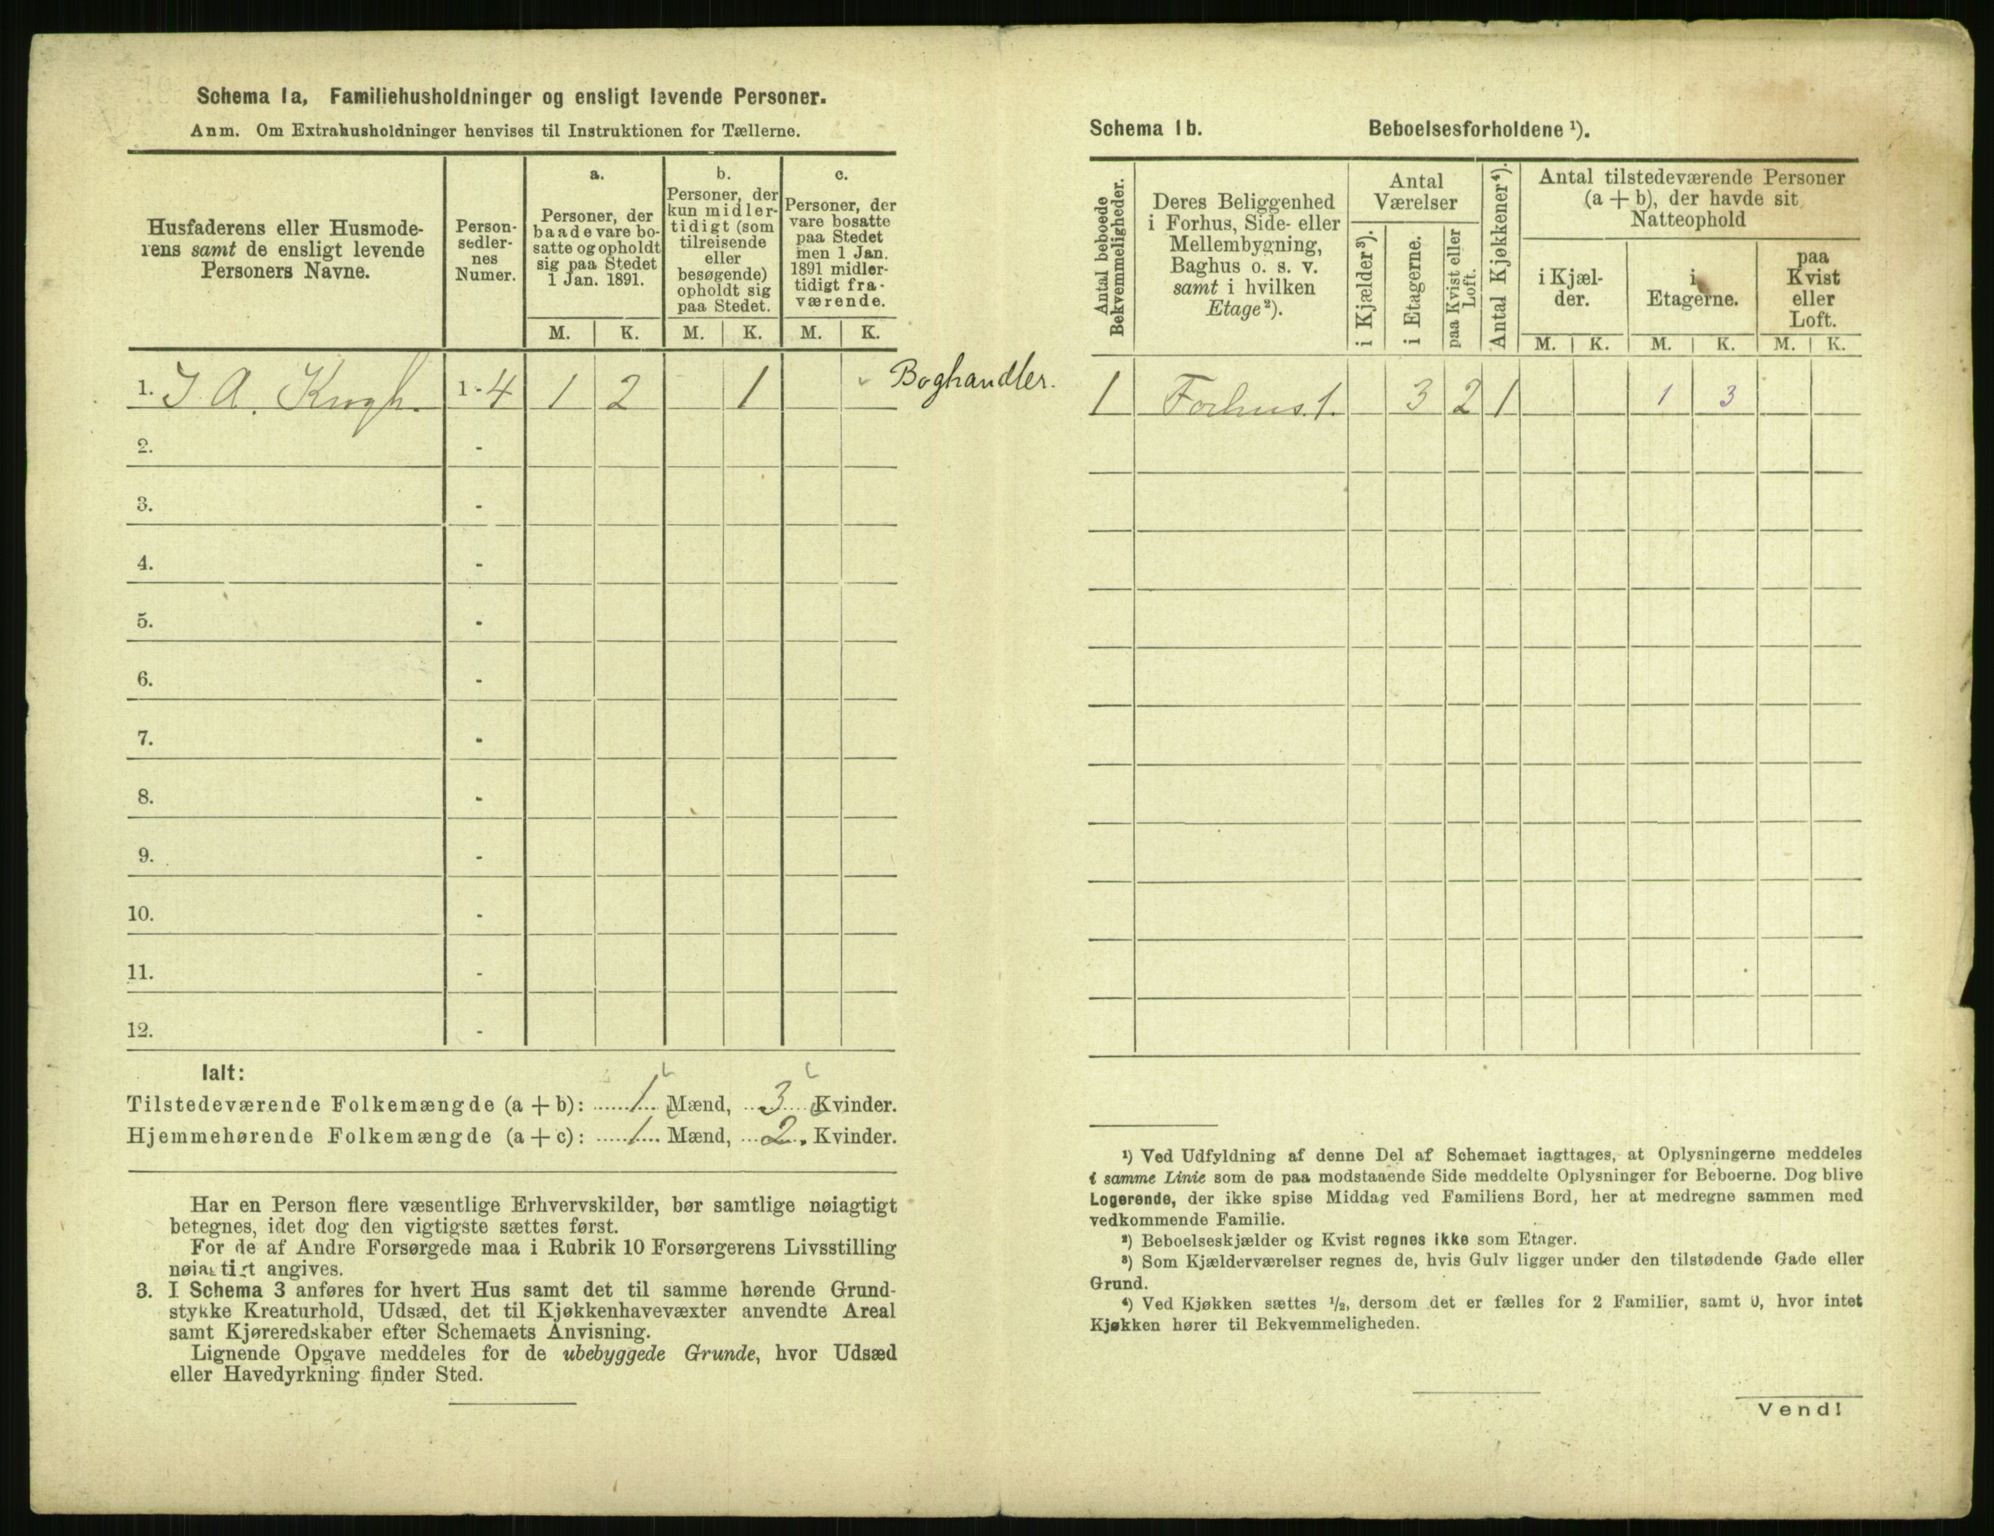 Schema 1a, Familiehusholdninger og ensligt levende Personer.
Anm. Om Extrahusholdninger henvises til Instruktionen for Tællerne.
Husfaderens eller Husmode-
rens samt de ensligt levende
Personers Navne.
Person-
sedler-
nes
Numer.
a.
Personer, der
baade vare bo-
satte og opholdt
sig paa Stedet
1 Jan. 1891.
b.
Personer, der
kun midler-
tidigt (som
tilreisende
eller
besøgende)
opholdt sig
paa Stedet.
c.
Personer, der
vare bosatte
paa Stedet
men 1 Jan.
1891 midler-
tidigt fra-
værende.
M. K. M. K. M. K.
1. J A. Krogh. 1-4 1 2 1 Boghandler.
2. -
3. -
4. -
5. -
6. -
7. -
8. -
9. -
10. -
11. -
12. -
Ialt:
Tilstedeværende Folkemængde (a + b): 1 Mænd, 3 Kvinder.
Hjemmehørende Folkemængde (a + c): 1 Mænd, 2 Kvinder.
Har en Person flere væsentlige Erhvervskilder, bør samtlige nøiagtigt
betegnes, idet dog den vigtigste sættes først.
For de af Andre Forsørgede maa i Rubrik 10 Forsørgerens Livsstilling
nøiagtigt angives.
3. I Schema 3 anføres for hvert Hus samt det til samme hørende Grund-
stykke Kreaturhold, Udsæd, det til Kjøkkenhavevæxter anvendte Areal
samt Kjøreredskaber efter Schemaets Anvisning.
Lignende Opgave meddeles for de ubebyggede Grunde, hvor Udsæd
eller Havedyrkning finder Sted.
Schema 1b. Beboelsesforholdene ¹).
Antal beboede
Bekvemmeligheder.
Deres Beliggenhed
i Forhus, Side- eller
Mellembygning,
Baghus o. s. v.
samt i hvilken
Etage²).
Antal
Værelser
i Kjælder³).
i Etagerne.
paa Kvist eller
Loft.
Antal Kjøkkener⁴).
Antal tilstedeværende Personer
(a + b), der havde sit
Natteophold
i Kjæl-
der.
i
Etagerne.
paa
Kvist
eller
Loft.
M. K. M. K. M. K.
1 Forhus. 1. 3 2 1 1 3
¹) Ved Udfyldning af denne Del af Schemaet iagttages, at Oplysningerne meddeles
i samme Linie som de paa modstaaende Side meddelte Oplysninger for Beboerne. Dog blive
Logerende, der ikke spise Middag ved Familiens Bord, her at medregne sammen med
vedkommende Familie.
²) Beboelseskjælder og Kvist regnes ikke som Etager.
³) Som Kjælderværelser regnes de, hvis Gulv ligger under den tilstødende Gade eller
Grund.
⁴) Ved Kjøkken sættes ½, dersom det er fælles for 2 Familier, samt 0, hvor intet
Kjøkken hører til Bekvemmeligheden.
Vend!